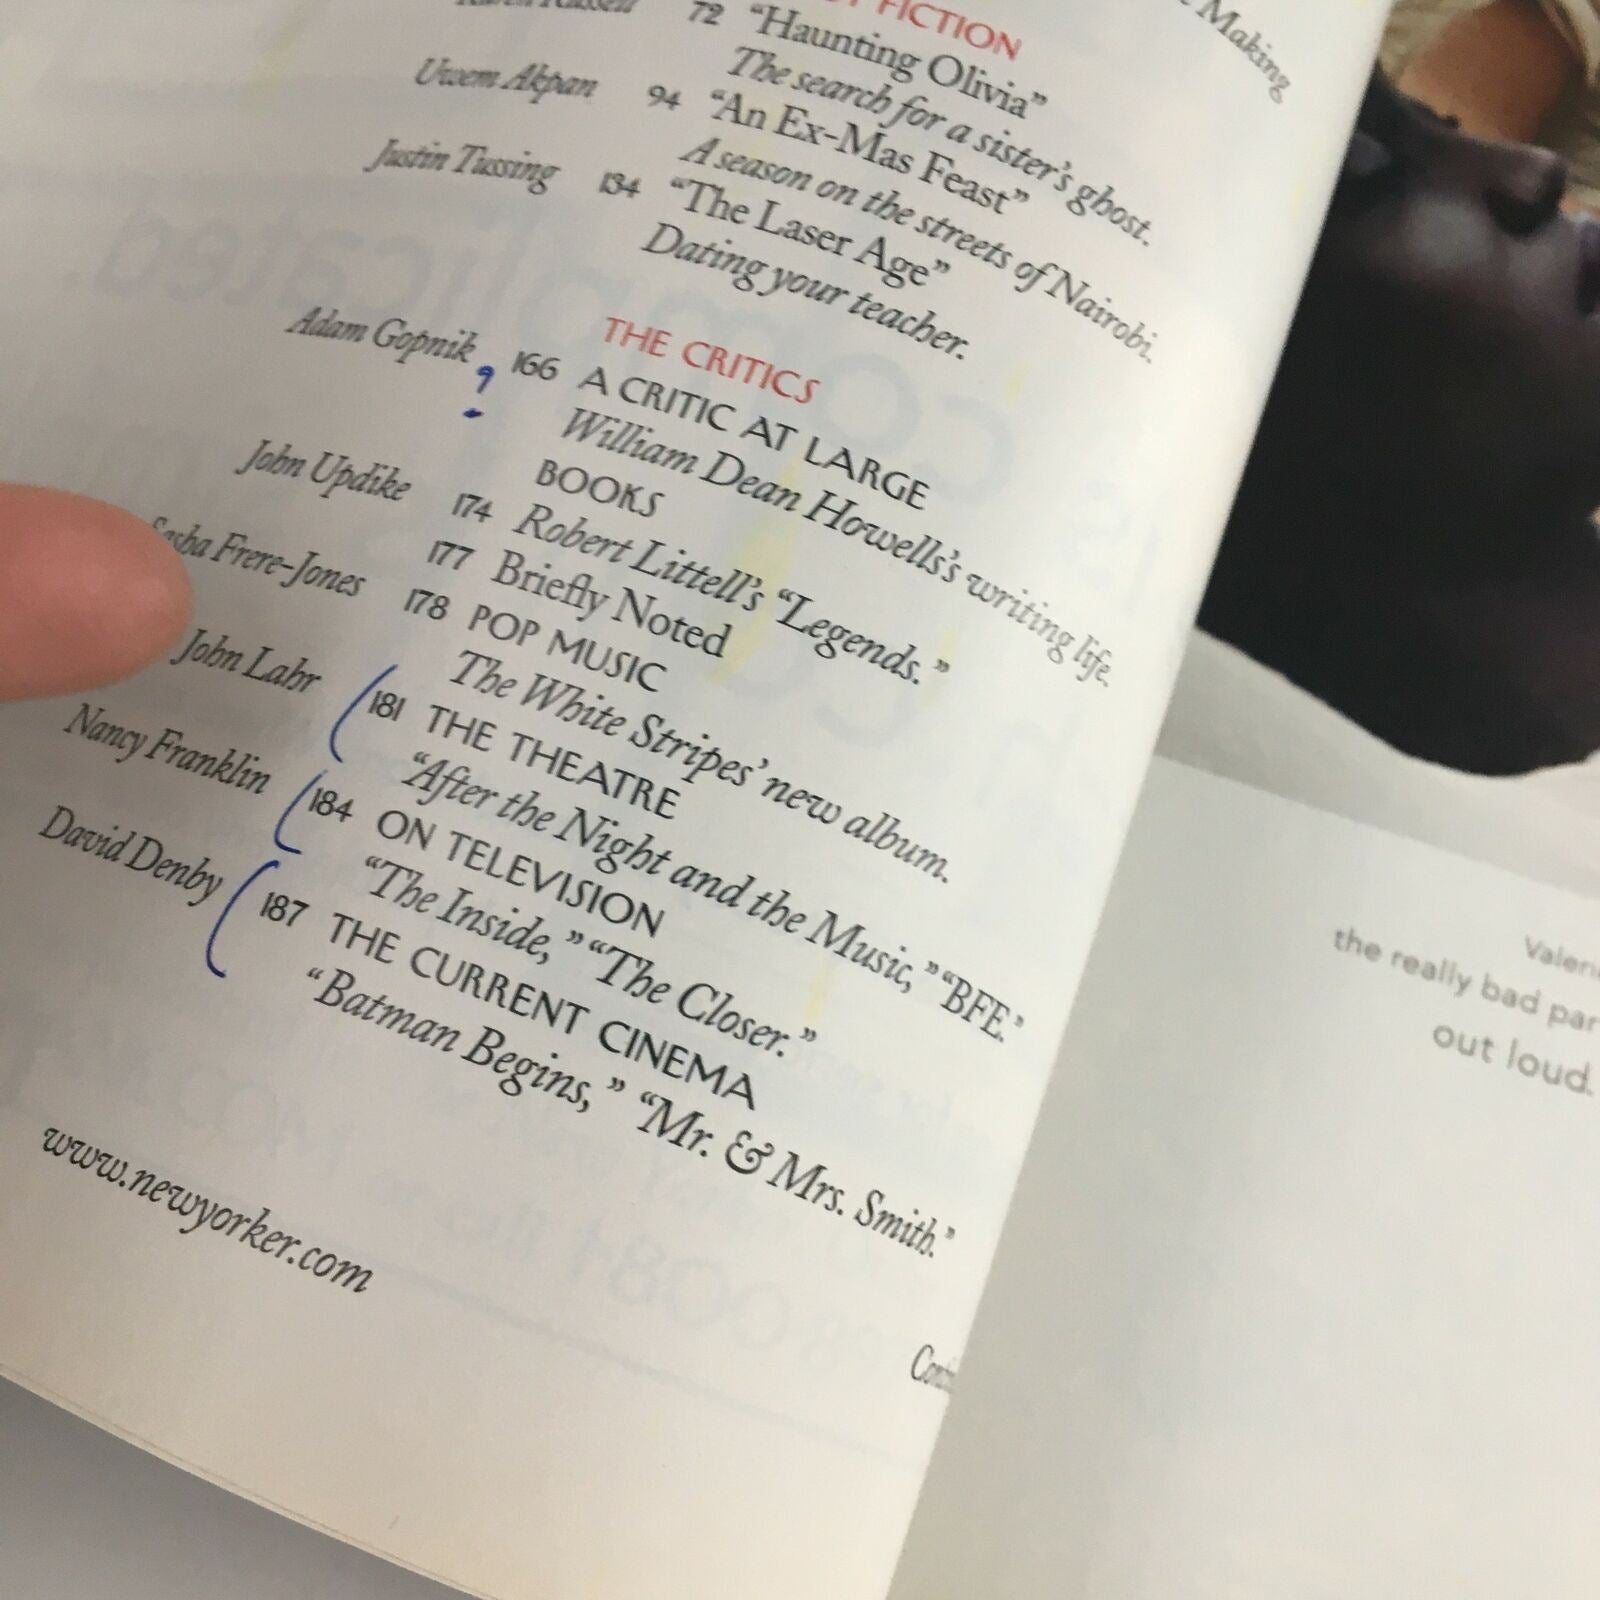 FICTION
72 "Haunting Olivia"
The search for a sister's ghost.
Uwem Akpan 94 "An Ex-Mas Feast"
A season on the streets of Nairobi.
Justin Tussing 134 "The Laser Age"
Dating your teacher.
THE CRITICS
Adam Gopnik ? 166 A CRITIC AT LARGE
William Dean Howells's writing life.
BOOKS
John Updike 174 Robert Littell's "Legends."
177 Briefly Noted
Sasha Frere-Jones 178 POP MUSIC
The White Stripes' new album.
John Lahr 181 THE THEATRE
"After the Night and the Music," "BFE."
Nancy Franklin 184 ON TELEVISION
"The Inside," "The Closer."
David Denby 187 THE CURRENT CINEMA
"Batman Begins," "Mr. & Mrs. Smith."
www.newyorker.com
Making
the really bad
out loud.